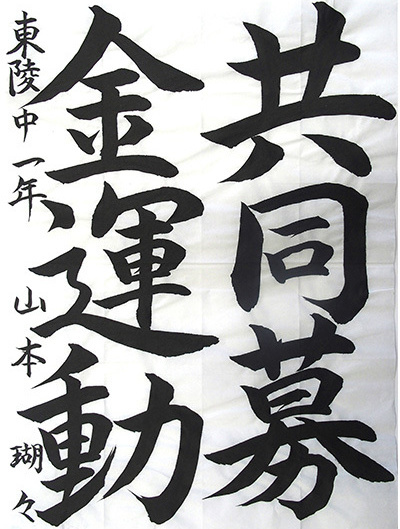 共同募
金運動
東陵中一年 山本 瑚々